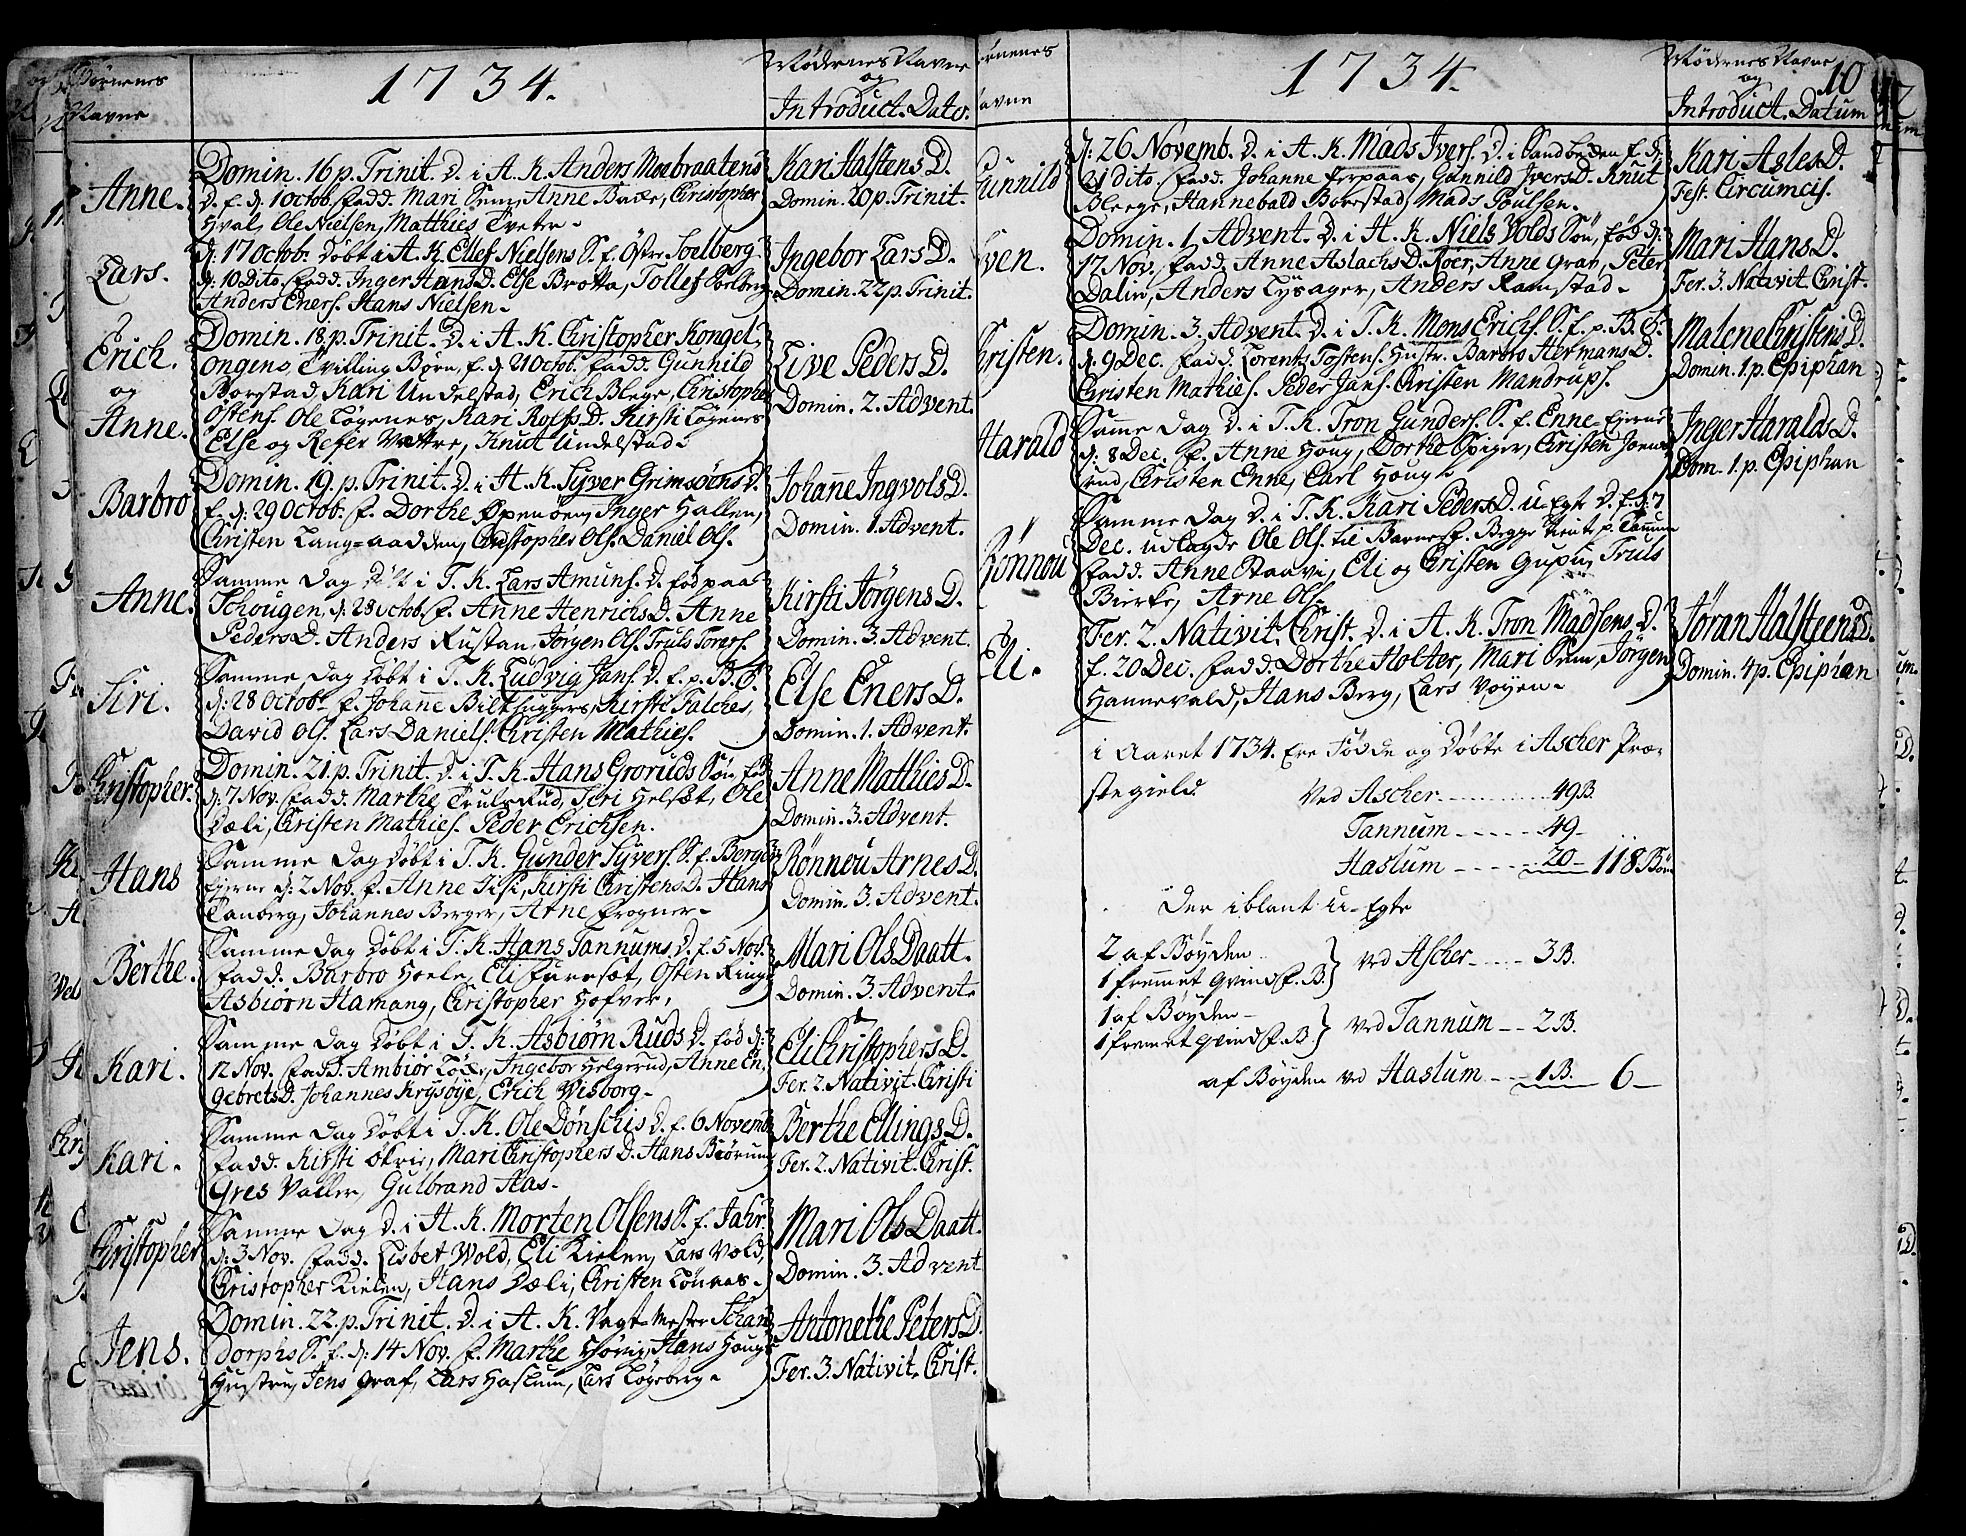 Børnenes
Navne
1734.
Mødernes Navne
og
Introduct. Dato.
Anne.
Domin. 16 p. Trinit. D. i A. K. Anders Moebraatens
D. f. d. 1 Octob. fadd. Mari Sem, Anne Christopher
Hval, Ole Nielsen, Matthies Tveter
Kari Halstens D.
Domin. 20 p. Trinit.
Lars.
d. 17 Octob. Døbt i A. K. Ellef Nielsens S. f. Øster Soelberg
d. 10 Dito. fadd. Inger Hans D. Else Brotta, Tollef
Anders Eners. Hans Nielsen.
Ingebor Lars D.
Domin. 22 p. Trinit.
Erich.
og
Anne.
Domin. 18. p. Trinit. D. i A. K. Christopher Kongel
ongens Tvilling Børn, f. d. 21 Octob. fadd. Gunnild
Borstad, Kari Undelstad, Erich Blege, Christopher
Østens. Ole Løgenes, Kari Rolfs D. Kirsti Løgenes
Else og Refer Vettre, Knut Undelstad.
Live Peders D.
Domin. 2. Advent.
Barbro
Domin. 19. p. Trinit. D. i A. K. Syver Grimsøens D.
f. d. 29 Octob. f. Dorthe Openøen, Inger Hallen,
Christen Lang-aadden, Christopher Ols. Daniel Ols.
Johanne Ingvols D.
Domin. 1. Advent.
Anne.
Samme Dag Døbt i T. K. Lars Amuns. D. fød paa
Schougen, d. 28 Octob. f. Anne Henrichs D. Anne
Peders D. Anders Rustan, Jørgen Ols. Truls Torers.
Kirsti Jørgens D.
Domin. 3. Advent.
Siri.
Samme Dag Døbt i T. K. Ludvig Jans. D. f. p. B. S.
d. 28 Octob. f. Johanne Bilthuggers, Kirsti Falches,
David Ols. Lars Daniels. Christen Mathies.
Else Eners D.
Domin. 1. Advent.
Christopher.
Domin. 21. p. Trinit. D. i T. K. Hans Groruds Søn, fød
d. 7 Nov. fadd. Marthe Trulsrud, Siri Helset, Ole
Dæli, Christen Mathies. Peder Erichsen.
Anne Matthies D.
Domin. 3. Advent.
Hans
Samme Dag Døbt i T. K. Gunder Syvers. S. f. Berger
Ejerne d. 2 Nov. f. Anne Kirsti Christens D. Hans
Tanberg, Johannes Berger, Arne Frogner.
Rønnou Arnes D.
Domin. 3. Advent.
Berthe.
Samme Dag Døbt i T. K. Hans Tannums D. f. 5 Nov.
fadd. Barbro Hoele, Eli Østen Ring
Asbiørn Hamang, Christopher Hofver.
Mari Ols Daatt.
Domin. 3. Advent.
Kari.
Samme Dag Døbt i T. K. Asbiørn Ruds D. fød d.
12 Nov. fadd. Ambiør Ingebor Helgerud, Anne En,
gebrets D. Johannes Krysøye, Erich Visborg.
Eli Christophers D.
Fer. 2. Nativit. Christi
Kari.
Samme Dag Døbt i T. K. Ole Dønschis D. f. 6 Novemb.
fadd. Kirsti Økrie, Mari Christophers D. Hans Biørum
Gres Valler, Gulbrand Aas.
Berthe Ellings D.
Fer. 2. Nativit. Christ.
Christopher
Samme Dag D. i A. K. Morten Olsens S. f. Jahr
d. 3 Nov. fadd. Lisbet Wold, Eli Kielen, Lars Vold,
Christopher Kielen, Hans Dæli, Christen Lønaas.
Mari Ols Daatt.
Domin. 3. Advent
Jens.
Domin. 22. p. Trinit. D. i A. K. Vagt-Mester Schan
dorphs S. f. d. 14 Nov. f. Marthe Hans Houg
Hustru, Jens Graf, Lars Haslum, Lars Løgeberg.
Antonethe Peters D.
Fer. 3. Nativit. Christ.
ørnenes
avne
1734.
Mødernes Navne
og
Introduct. Datum
10
Gunnild
d. 26 Novemb. D. i A. K. Mads Ivers. D. i Sandbeden f. d.
21 dito. fadd. Johanne Erpaas, Gunnild Ivers D. Knut
Bleege, Hannebald Borstad, Mads Poulsen.
Kari Asles D.
Fest. Circumcis.
Sven.
Domin. 1 Advent. D. i A. K. Niels Volds Søn, fød d.
17 Nov. fadd. Anne Aslachs D. Røer, Anne Grav, Peter
Dalin, Anders Lysager, Anders Ramstad.
Mari Hans D.
Fer. 3. Nativit. Christ.
Christen.
Domin. 3. Advent. D. i T. K. Mons Erichs. S. f. p. B. S.
d. 9 Dec. fadd. Lorents Tostens. Hustr. Barbro Hermans D.
Christen Mathies. Peder Jans. Christen Mandrups.
Malene Christens D.
Domin. 1. p. Epiphan
Harald
Samme Dag D. i T. K. Tron Gunders. S. f. Enne-Ejerne
d. 8 Dec. f. Anne Houg, Dorthe Spiger, Christen
rud, Christen Enne, Carl Houg.
Inger Haralds D.
Dom. 1. p. Epiphan
Rønnou
Samme Dag D. i T. K. Kari Peders D. u-Egte D. f. d. 7
Dec. udlagde Ole Ols. til Barnef. Begge tiente p. Tannum
fadd. Anne Staavi, Eli og Christen Gupu, Truls
Bierke, Arne Ols.
Eli.
Fer. 2. Nativit. Christ. D. i A. K. Tron Madsens D.
f. 20 Dec. fadd. Dorthe Holter, Mari Sem, Jørgen
Hannevald, Hans Berg, Lars Voyen.
Jøran Halsteens D.
Domin. 4 p. Epiphan
i Aaret 1734. Ere Fødde og Døbte i Ascher Præ-
stegield.
Ved Ascher 49 B.
Tannum 49
Haslum 20 118 Bør
Der iblant u-Egte
2 af Bøyden
1 fremmet Qvindf. B. } ved Ascher 3 B.
1 af Bøyden
1 fremmet Qvindf. B. } ved Tannum 2 B.
af Bøyden ved Haslum 1 B. 6